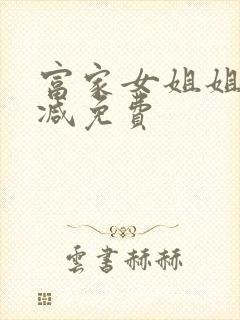 富家女姐姐
减免费
雲書赫赫